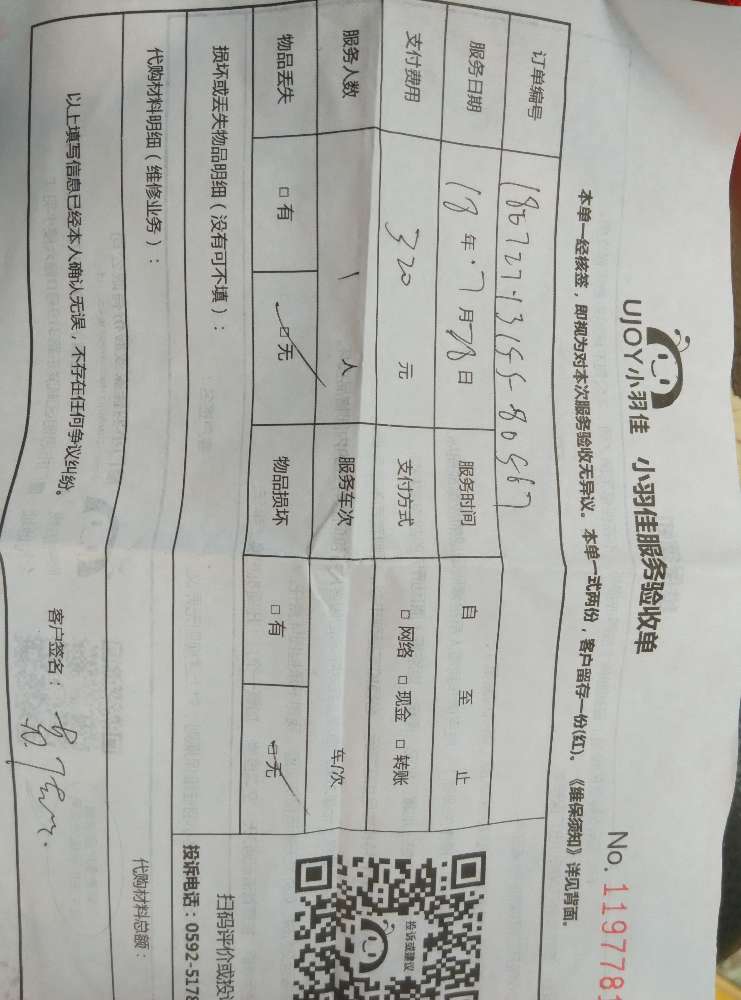 UJOY小羽佳 小羽佳服务验收单
No. 1197781
本单一经核签，即视为对本次服务验收无异议。本单一式两份，客户留存一份(红)。《维保须知》详见背面。
订单编号
服务日期 18年7月28日 服务时间 自 至 止
支付费用 320 元 支付方式 □网络 □现金 □转账
服务人数 1 人 服务车次 车/次
物品丢失 □有 □无 物品损坏 □有 □无
损坏或丢失物品明细（没有可不填）：
代购材料明细（维修业务）：
代购材料总额：
以上填写信息已经本人确认无误，不存在任何争议纠纷。
客户签名：
投诉或建议
扫码评价或投
投诉电话：0592-5178